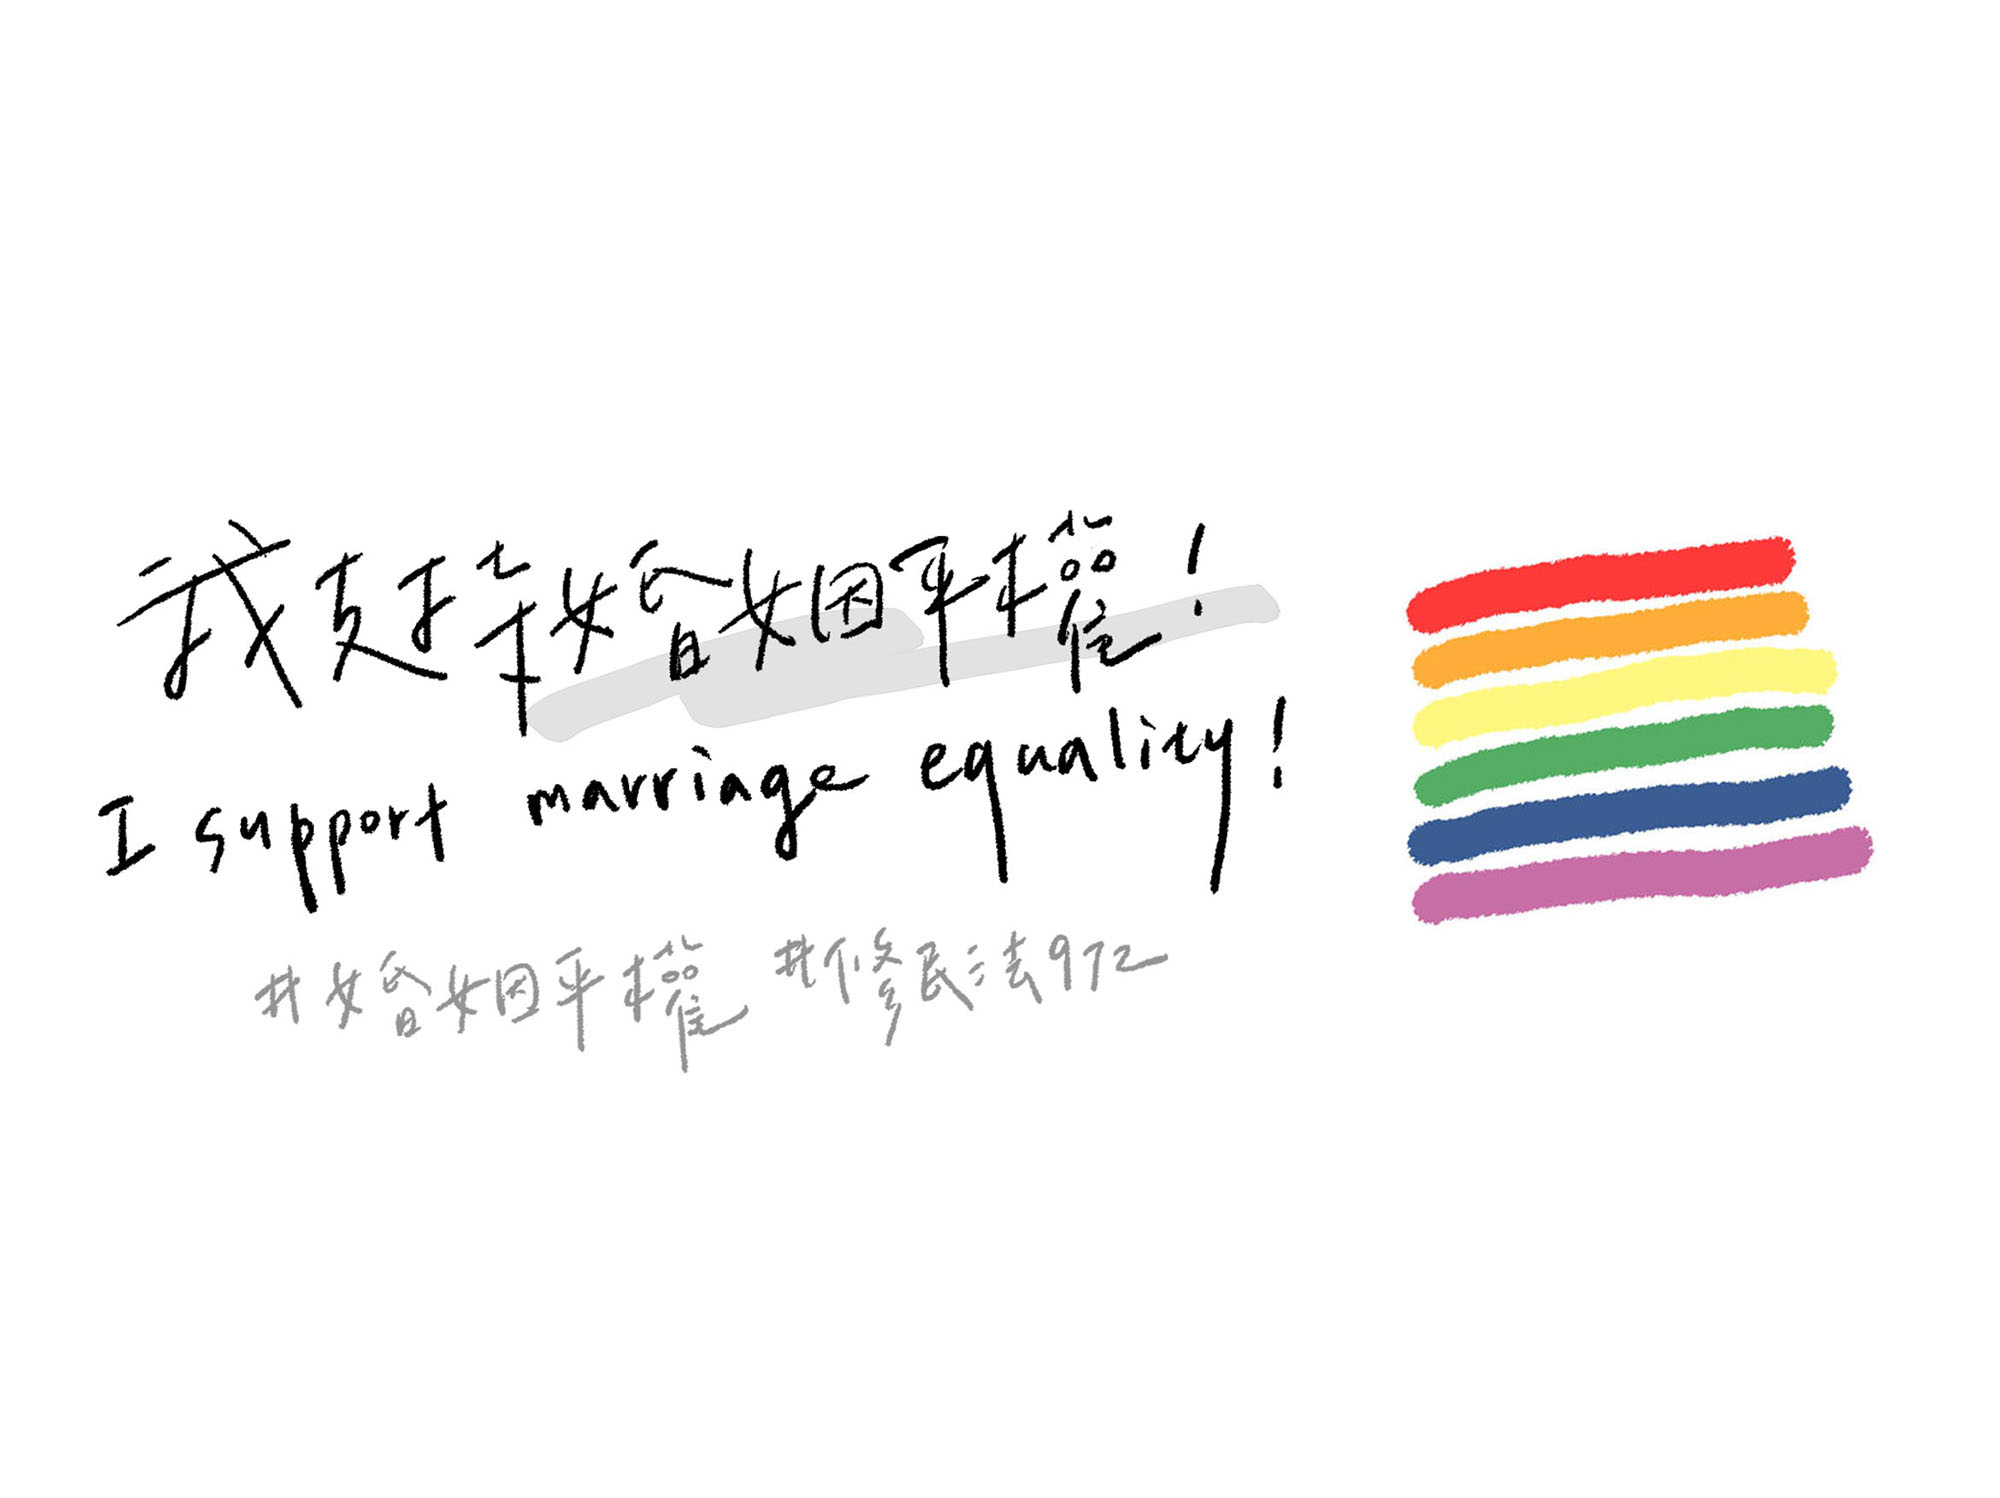 我支持婚姻平權！
I support marriage equality!
#婚姻平權 #修民法972